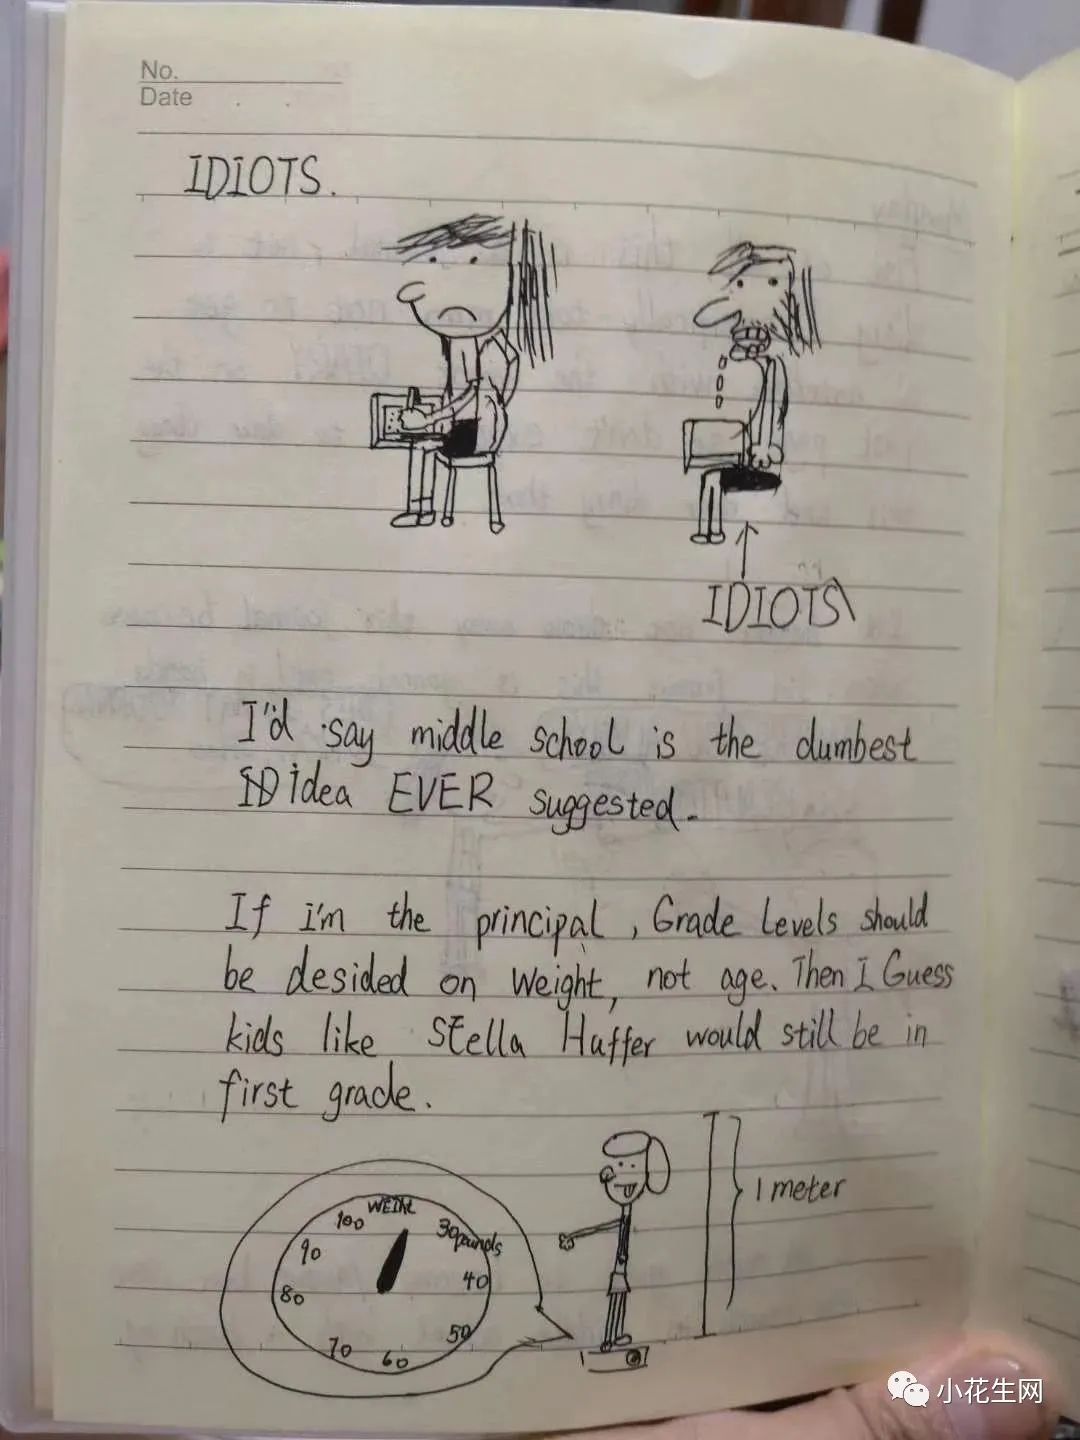 No.
Date
IDIOTS.
IDIOTS
I'd say middle school is the dumbest
idea EVER suggested.
If i'm the principal, Grade Levels should
be desided on weight, not age. Then I Guess
kids like Stella Huffer would still be in
first grade.
1 meter
100
30pounds
90
40
80
50
70
60
小花生网